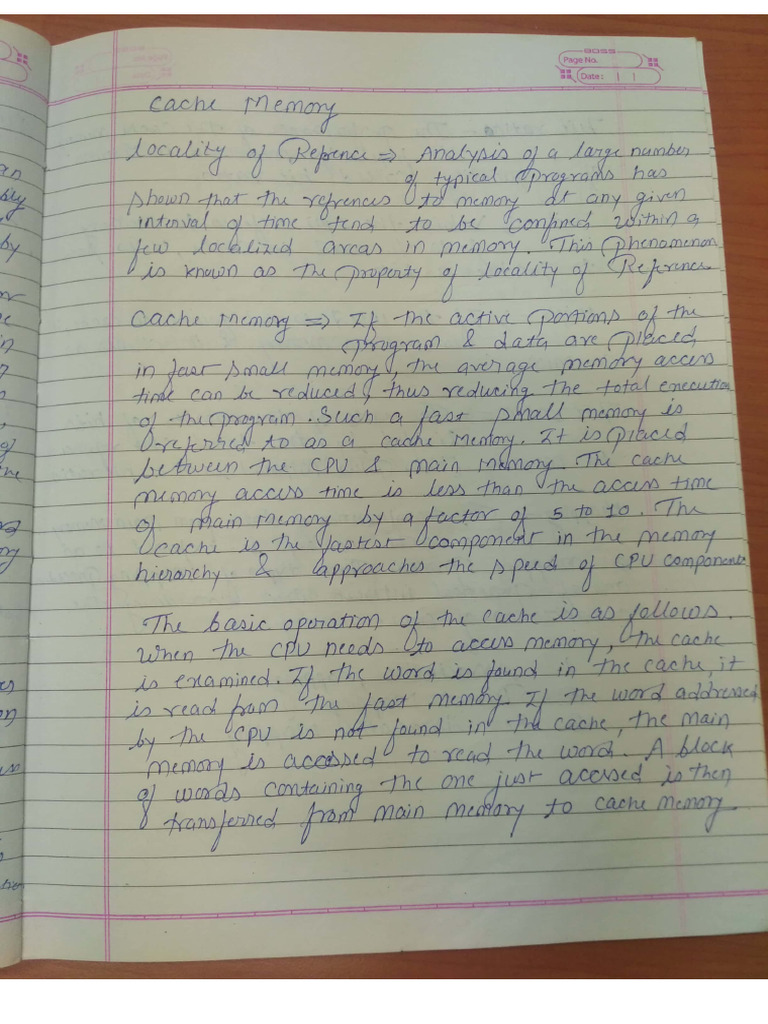 BOSS
Page No.
Date:
Cache Memory
Locality of Refrence ⇒ Analysis of a large number
of typical programs has
shown that the refrences to memory at any given
interval of time tend to be confined within a
few localized areas in memory. This phenomenon
is known as the property of locality of Reference
Cache Memory ⇒ If the active portions of the
program & data are placed
in fast small memory, the average memory access
time can be reduced, thus reducing the total execution
of the program. Such a fast small memory is
referred to as a cache Memory. It is placed
between the CPU & main Memory. The cache
memory access time is less than the access time
of main memory by a factor of 5 to 10. The
cache is the fastest component in the memory
hierarchy & approaches the speed of CPU components
The basic operation of the cache is as follows.
When the CPU needs to access memory, the cache
is examined. If the word is found in the cache, it
is read from the fast memory. If the word addressed
by the CPU is not found in the cache, the main
memory is accessed to read the word. A block
of words containing the one just accessed is then
transferred from main memory to cache memory.